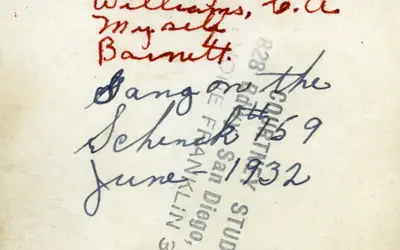 Williams, C.A
Myself
Barnett.
Gang on the
Schenck 159
June - 1932
STUD
828 San Diego,
FRANKLIN 3